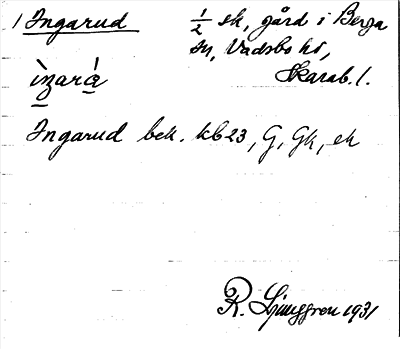 1 Ingarud ½ sk, gård i Berga
sn, Vadsbo hd,
Skarab. l.
Ingarud bek. kb 23, G, Gk, ek
R. Ljunggren 1931